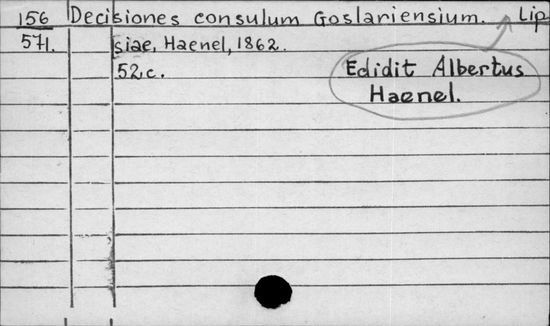 156 Decisiones consulum Goslariensium. Lip
571. siae, Haenel, 1862.
52.c.
Edidit Albertus
Haenel.